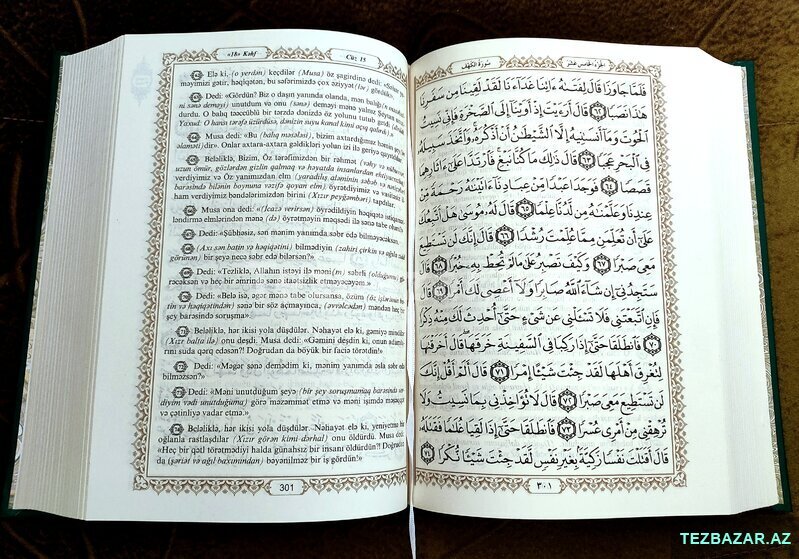 «18» Kəhf
Cüz 15
62 Elə ki, (o yerdən) keçdilər (Musa) öz şagirdinə dedi:
məyimizi gətir, həqiqətən, bu səfərimizdə çox əziyyət
63 Dedi: «Gördün? Biz o daşın yanında olanda, mən balığı
ni sənə deməyi) unutdum və onu (sənə) deməyi mənə yalnız Şeytan
durdu. O balıq təəccüblü bir tərzdə dənizdə öz yolunu tutub getdi.
Yaxud: O hərin tərəfə üzürdüsə, dənizin suyu kanal kimi açıq qalırdı.)
64 Musa dedi: «Bu (balıq məsələsi), bizim axtardığımız həmin
əlaməti)dir». Onlar axtara-axtara gəldikləri yolun izi ilə geriyə qayıtdılar.
65 Beləliklə, Bizim, Öz tərəfimizdən bir rəhmət (vəhy və
uzun ömür, gözlərdən gizlin qalmaq və həyatda insanlardan ehtiyacsızlıq)
verdiyimiz və Öz yanımızdan elm (yaradılış aləminin səbəb və
barəsində bilənin boynuna vəzifə qoyan elm) öyrətdiyimiz və
ham verdiyimiz bəndələrimizdən birini (Xızır peyğəmbəri) tapdılar.
66 Musa ona dedi: «(İcazə verirsən) öyrədildiyin həqiqətə
ləndirmə elmlərindən mənə (də) öyrətməyin məqsədi ilə sənə tabe olum?»
67 Dedi: «Şübhəsiz, sən mənim yanımda səbr edə bilməyəcəksən.
68 (Axı sən batin və həqiqətini) bilmədiyin (zahiri çirkin və ağla
görünən) bir şeyə necə səbr edə bilərsən?»
69 Dedi: «Tezliklə, Allahın istəyi ilə məni(m) səbrli (olduğumu)
rəcəksən və heç bir əmrində sənə itaətsizlik etməyəcəyəm».
70 Dedi: «Belə isə, əgər mənə tabe olursansa, özüm (öz işlərimin
in və həqiqətindən) sənə bir söz açmayınca, (əvvəlcədən) məndən heç
şey barəsində soruşma».
71 Beləliklə, hər ikisi yola düşdülər. Nəhayət elə ki, gəmiyə mindilər
(Xızır balta ilə) onu deşdi. Musa dedi: «Gəmini deşdin ki, onun
rını suda qərq edəsən?! Doğrudan da böyük bir faciə törətdin!»
72 Dedi: «Məgər sənə demədim ki, mənim yanımda əsla səbr edə
bilməzsən?»
73 Dedi: «Məni unutduğum şeyə (bir şey soruşmamaq barəsində
diyim vədi unutduğuma) görə məzəmmət etmə və məni işimdə məşəqqət
və çətinliyə vadar etmə.»
74 Beləliklə, hər ikisi yola düşdülər. Nəhayət elə ki, yeniyetmə bir
oğlanla rastlaşdılar (Xızır görən kimi dərhal) onu öldürdü. Musa dedi:
«Heç bir qətl törətmədiyi halda günahsız bir insanı öldürdün?! Doğrudan
da (şəriət və ağıl baxımından) bəyənilməz bir iş gördün!»
301
سورة الكهف
الجزء الخامس عشر
فَلَمَّا جَاوَزَا قَالَ لِفَتَىٰهُ ءَاتِنَا غَدَآءَنَا لَقَدْ لَقِينَا مِن سَفَرِنَا
هَٰذَا نَصَبًا ٦٢ قَالَ أَرَءَيْتَ إِذْ أَوَيْنَآ إِلَى ٱلصَّخْرَةِ فَإِنِّي نَسِيتُ
ٱلْحُوتَ وَمَآ أَنسَىٰنِيهُ إِلَّا ٱلشَّيْطَٰنُ أَنْ أَذْكُرَهُۥ وَٱتَّخَذَ سَبِيلَهُۥ
فِي ٱلْبَحْرِ عَجَبًا ٦٣ قَالَ ذَٰلِكَ مَا كُنَّا نَبْغِ فَٱرْتَدَّا عَلَىٰٓ ءَاثَارِهِمَا
قَصَصًا ٦٤ فَوَجَدَا عَبْدًا مِّنْ عِبَادِنَآ ءَاتَيْنَٰهُ رَحْمَةً مِّنْ
عِندِنَا وَعَلَّمْنَٰهُ مِن لَّدُنَّا عِلْمًا ٦٥ قَالَ لَهُۥ مُوسَىٰ هَلْ أَتَّبِعُكَ
عَلَىٰٓ أَن تُعَلِّمَنِ مِمَّا عُلِّمْتَ رُشْدًا ٦٦ قَالَ إِنَّكَ لَن تَسْتَطِيعَ
مَعِيَ صَبْرًا ٦٧ وَكَيْفَ تَصْبِرُ عَلَىٰ مَا لَمْ تُحِطْ بِهِۦ خُبْرًا ٦٨ قَالَ
سَتَجِدُنِيٓ إِن شَآءَ ٱللَّهُ صَابِرًا وَلَآ أَعْصِي لَكَ أَمْرًا ٦٩ قَالَ
فَإِنِ ٱتَّبَعْتَنِي فَلَا تَسْـَٔلْنِي عَن شَيْءٍ حَتَّىٰٓ أُحْدِثَ لَكَ مِنْهُ ذِكْرًا
٧٠ فَٱنطَلَقَا حَتَّىٰٓ إِذَا رَكِبَا فِي ٱلسَّفِينَةِ خَرَقَهَا قَالَ أَخَرَقْتَهَا
لِتُغْرِقَ أَهْلَهَا لَقَدْ جِئْتَ شَيْـًٔا إِمْرًا ٧١ قَالَ أَلَمْ أَقُلْ إِنَّكَ
لَن تَسْتَطِيعَ مَعِيَ صَبْرًا ٧٢ قَالَ لَا تُؤَاخِذْنِي بِمَا نَسِيتُ وَلَا
تُرْهِقْنِي مِنْ أَمْرِي عُسْرًا ٧٣ فَٱنطَلَقَا حَتَّىٰٓ إِذَا لَقِيَا غُلَٰمًا فَقَتَلَهُۥ
قَالَ أَقَتَلْتَ نَفْسًا زَكِيَّةً بِغَيْرِ نَفْسٍ لَّقَدْ جِئْتَ شَيْـًٔا نُّكْرًا ٧٤
٣٠١
TEZBAZAR.AZ